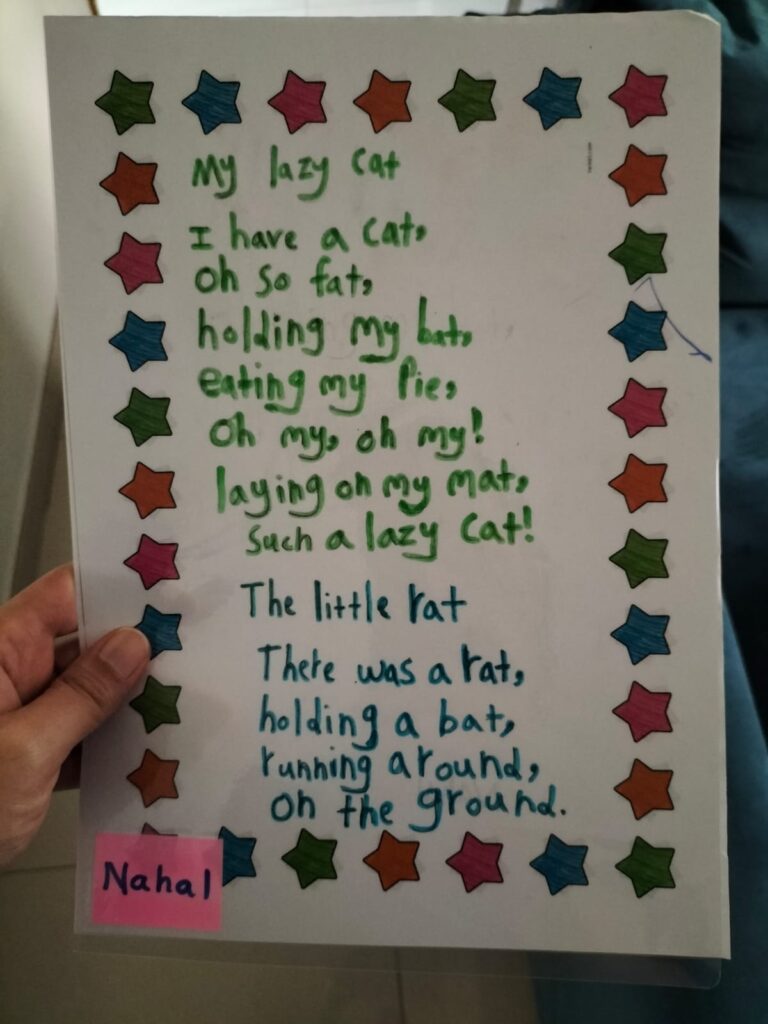 My lazy cat
I have a cat,
Oh so fat,
holding my bat,
eating my Pie,
Oh my, oh my!
laying on my mat,
Such a lazy cat!
The little rat
There was a rat,
holding a bat,
running around,
On the ground.
Nahal